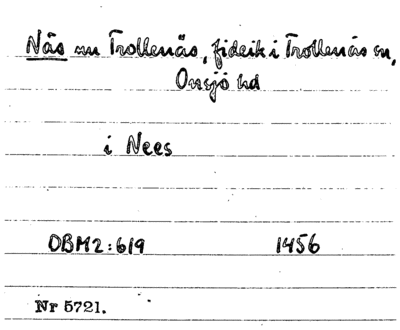 Näs nu Trollenäs, fideik i Trollenäs sn,
Onsjö hd
i Nees
OBM2:619 1456
Nr 5721.